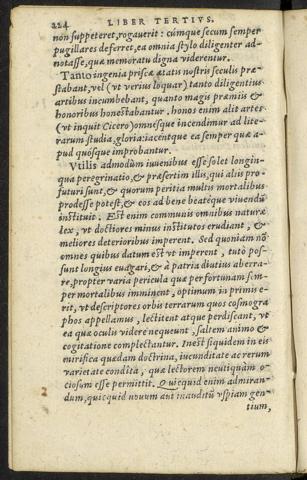 224 LIBER TERTIVS.
non suppeteret, rogauerit: cúmque secum semper
pugillares deferret, ea omnia stylo diligenter ad-
notasse, quæ memoratu digna viderentur.
Tanto ingenia priscæ ætatis nostris seculis præ-
stabant, vel (vt verius loquar) tanto diligentius
artibus incumbebant, quanto magis præmiis &
honoribus honestabantur. honos enim alit artes
(vt inquit Cicero) omnésque incendimur ad lite-
rarum studia, gloria: iacéntque ea semper quæ a-
pud quosque improbantur.
Vtilis admodùm iuuenibus esse solet longin-
qua peregrinatio, & præsertim illis, qui aliis pro-
futuri sunt, & quorum peritia multis mortalibus
prodesse potest, & eos ad bene beatéque viuendū
instituit. Est enim communis omnibus naturæ
lex, vt doctiores minus institutos erudiant, &
meliores deterioribus imperent. Sed quoniam nō
omnes quibus datum est vt imperent, tutò pos-
sunt longius euagari, & à patria diutius aberra-
re, propter varia pericula quæ per fortunam sem-
per mortalibus imminent, optimum in primis e-
rit, vt descriptores orbis terrarum quos cosmogra
phos appellamus, lectitent atque perdiscant, vt
ea quæ oculis videre nequeunt, saltem animo &
cogitatione complectantur. Inest siquidem in eis
mirifica quædam doctrina, iucunditate ac rerum
varietate condita, quæ lectorem neutiquàm o-
ciosum esse permittit. Quicquid enim admiran-
dum, quicquid nouum aut inauditū vspiam gen-
tium,